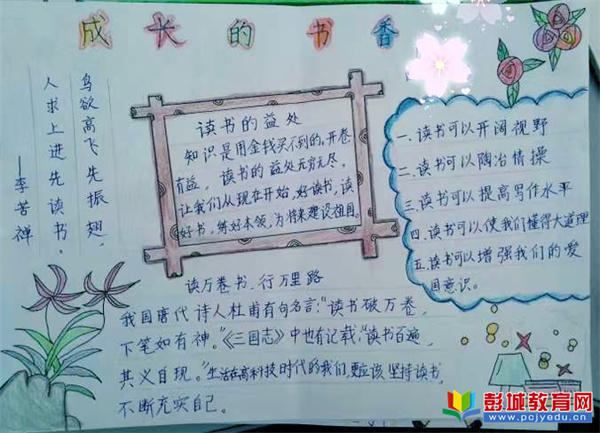 成长的书香
鸟欲高飞先振翅，
人求上进先读书。
——李苦禅
读书的益处
知识是用金钱买不到的。开卷
有益，读书的益处无穷无尽。
让我们从现在开始，好读书，读
好书，练好本领，为将来建设祖国。
一、读书可以开阔视野
二、读书可以陶冶情操
三、读书可以提高写作水平
四、读书可以使我们懂得大道理
五、读书可以增强我们的爱
国意识。
读万卷书，行万里路
我国唐代诗人杜甫有句名言："读书破万卷，
下笔如有神。"《三国志》中也有记载："读书百遍，
其义自现。"生活在高科技时代的我们，更应该坚持读书，
不断充实自己。
彭城教育网
www.pcjyedu.cn